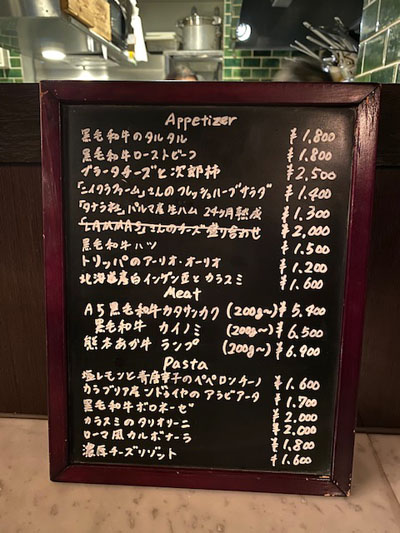 Appetizer
黒毛和牛のタルタル ¥1.800
黒毛和牛ローストビーフ ¥1.800
ブラータチーズと次郎柿 ¥2,500
「イクラファーム」さんのフレッシュハーブサラダ ¥1.400
「タナラ社」パルマ産生ハム 24ヶ月熟成 ¥1.300
「LAMMAS」さんのチーズ盛り合わせ ¥2,000
黒毛和牛ハツ ¥1.500
トリッパのアーリオ・オーリオ ¥1.200
北海道産白インゲン豆とカラスミ ¥1.600
Meat
A5黒毛和牛カタサンカク (200g~) ¥5.400
黒毛和牛 カイノミ (200g~) ¥6.500
熊本あか牛 ランプ (200g~) ¥6.900
Pasta
塩レモンと青唐辛子のペペロンチーノ ¥1.600
カラブリア産ンドゥイヤのアラビアータ ¥1.700
黒毛和牛ボロネーゼ ¥2.000
カラスミのタリオリーニ ¥2.000
ローマ風カルボナーラ ¥1.800
濃厚チーズリゾット ¥1.600